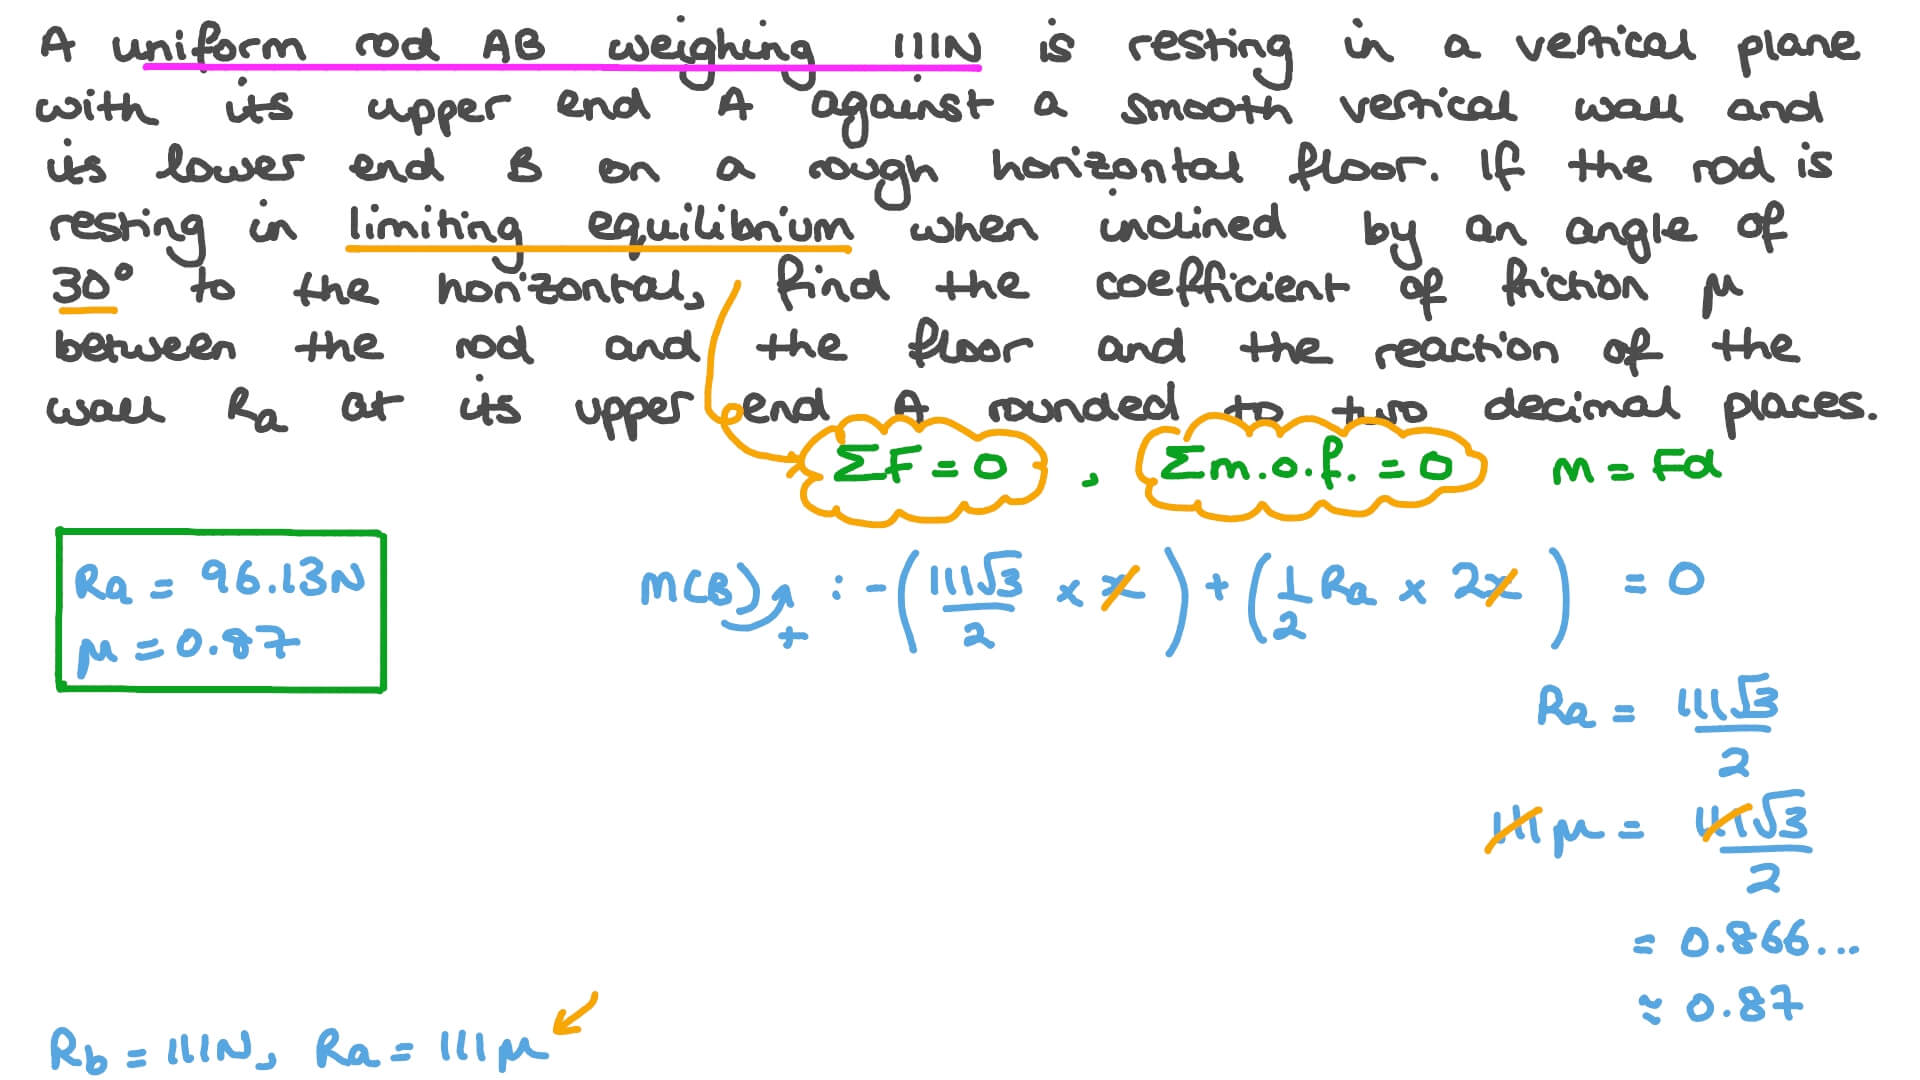 A uniform rod AB weighing 111N is resting in a vertical plane
with its upper end A against a smooth vertical wall and
its lower end B on a rough horizontal floor. If the rod is
resting in limiting equilibrium when inclined by an angle of
30° to the horizontal, find the coefficient of friction μ
between the rod and the floor and the reaction of the
wall Ra at its upper end A rounded to two decimal places.
ΣF = 0 , Σm.o.f. = 0 M = Fd
Ra = 96.13N
μ = 0.87
M(B)↷+ : -(111√3/2 × x) + (1/2 Ra × 2x) = 0
Ra = 111√3/2
111μ = 111√3/2
= 0.866...
≈ 0.87
Rb = 111N, Ra = 111μ